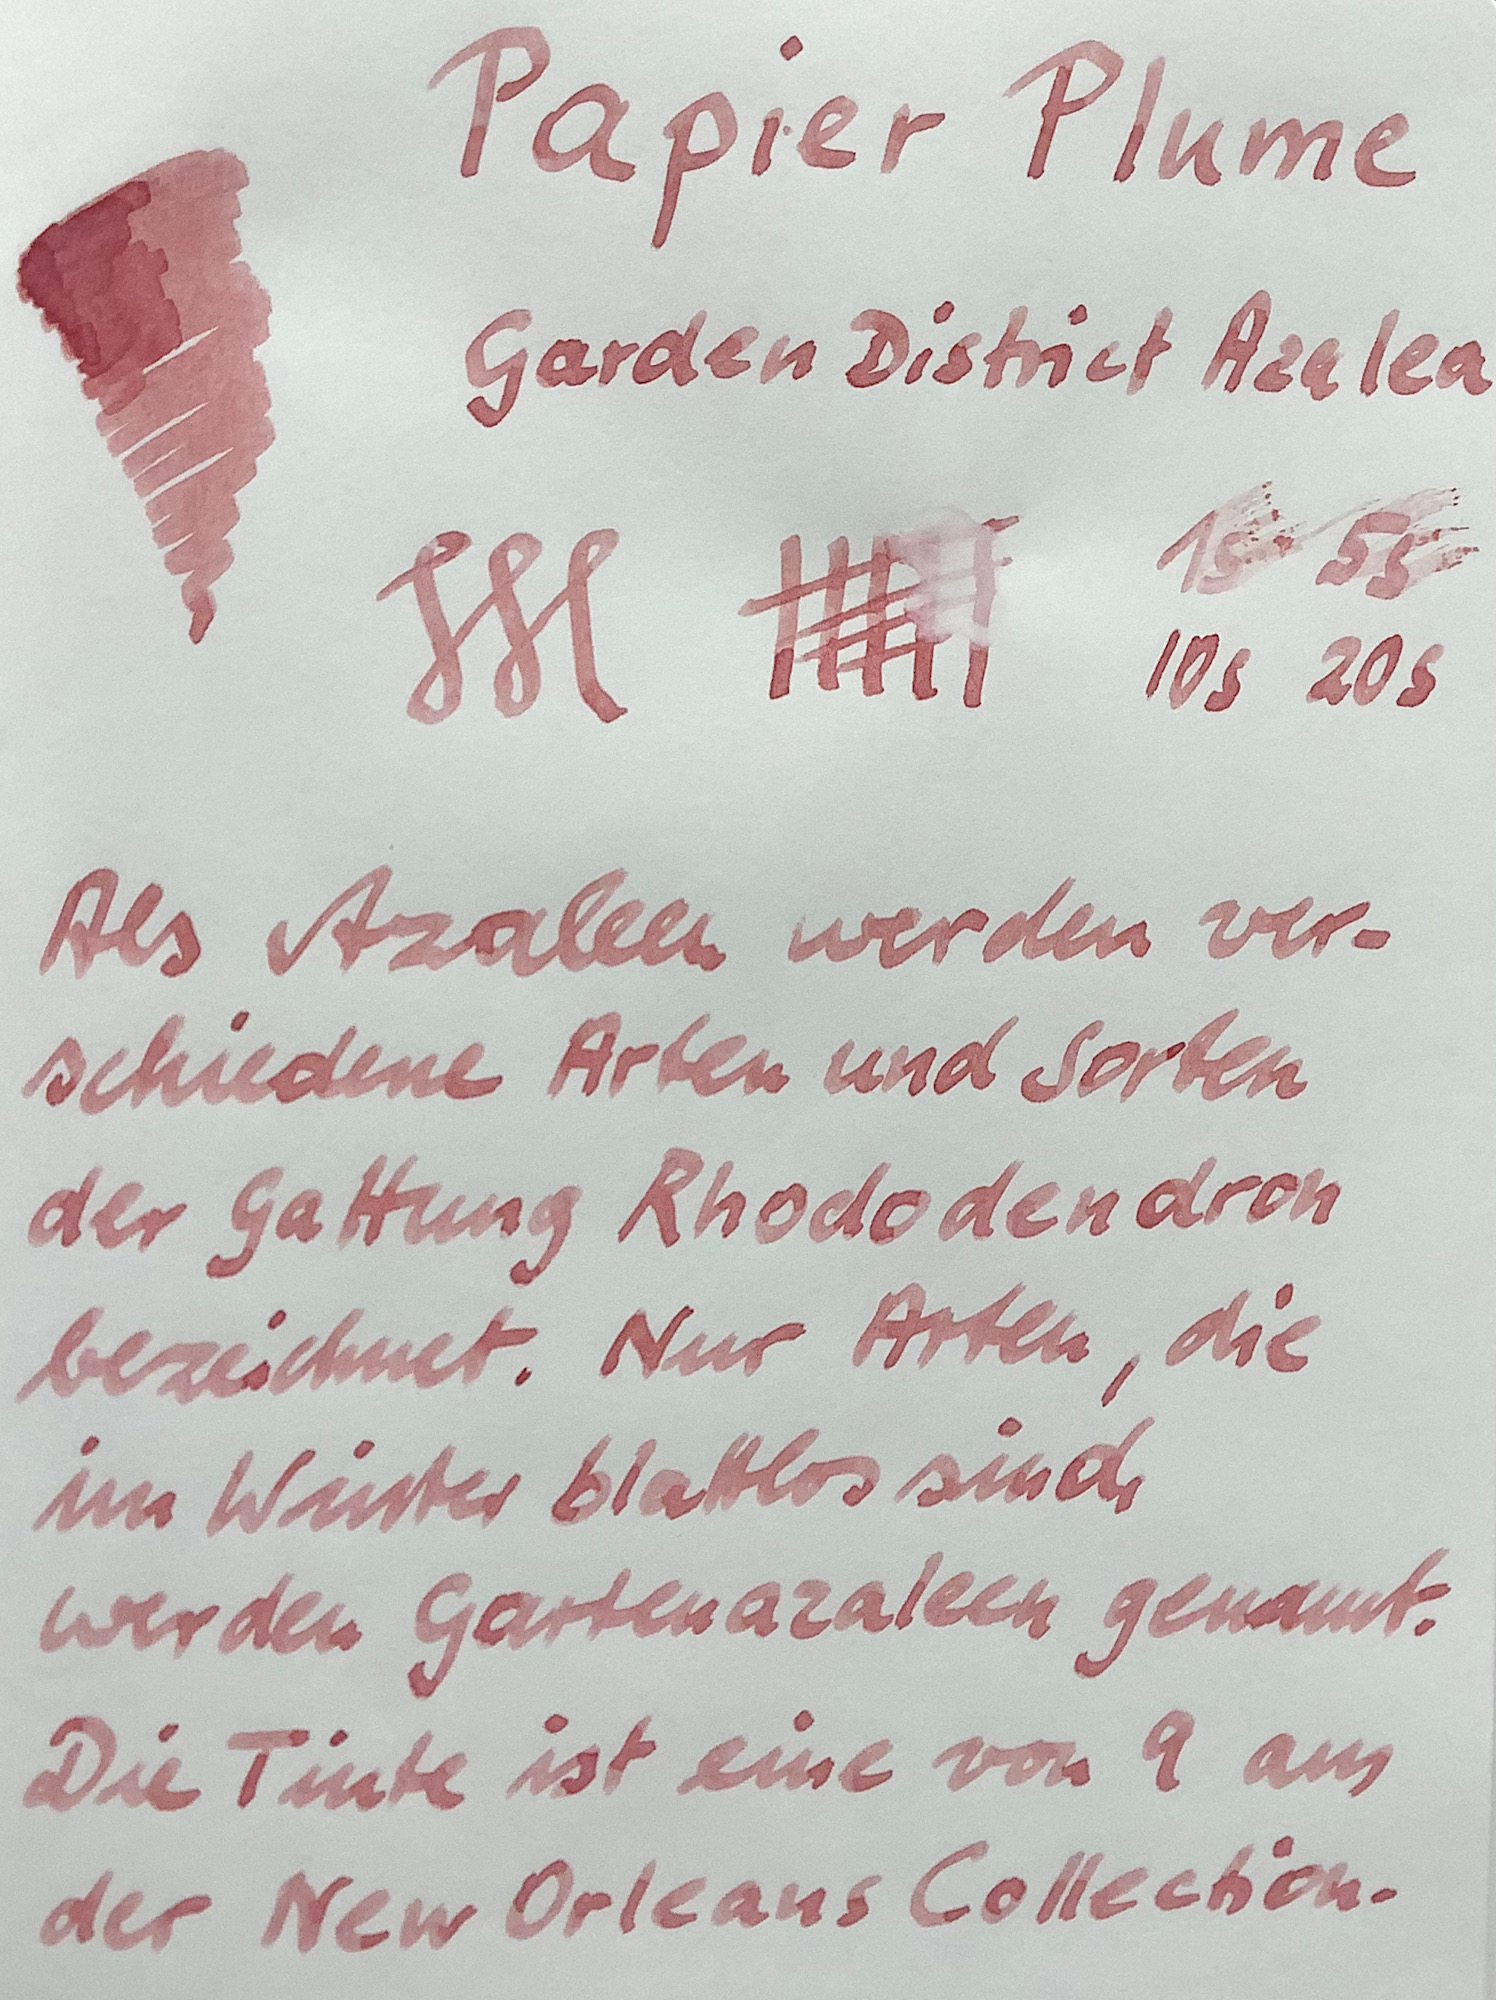 Papier Plume
Garden District Azalea
1s 5s
10s 20s
Als Azaleen werden ver-
schiedene Arten und Sorten
der Gattung Rhododendron
bezeichnet. Nur Arten, die
im Winter blattlos sind,
werden Gartenazaleen genannt.
Die Tinte ist eine von 9 aus
der New Orleans Collection.